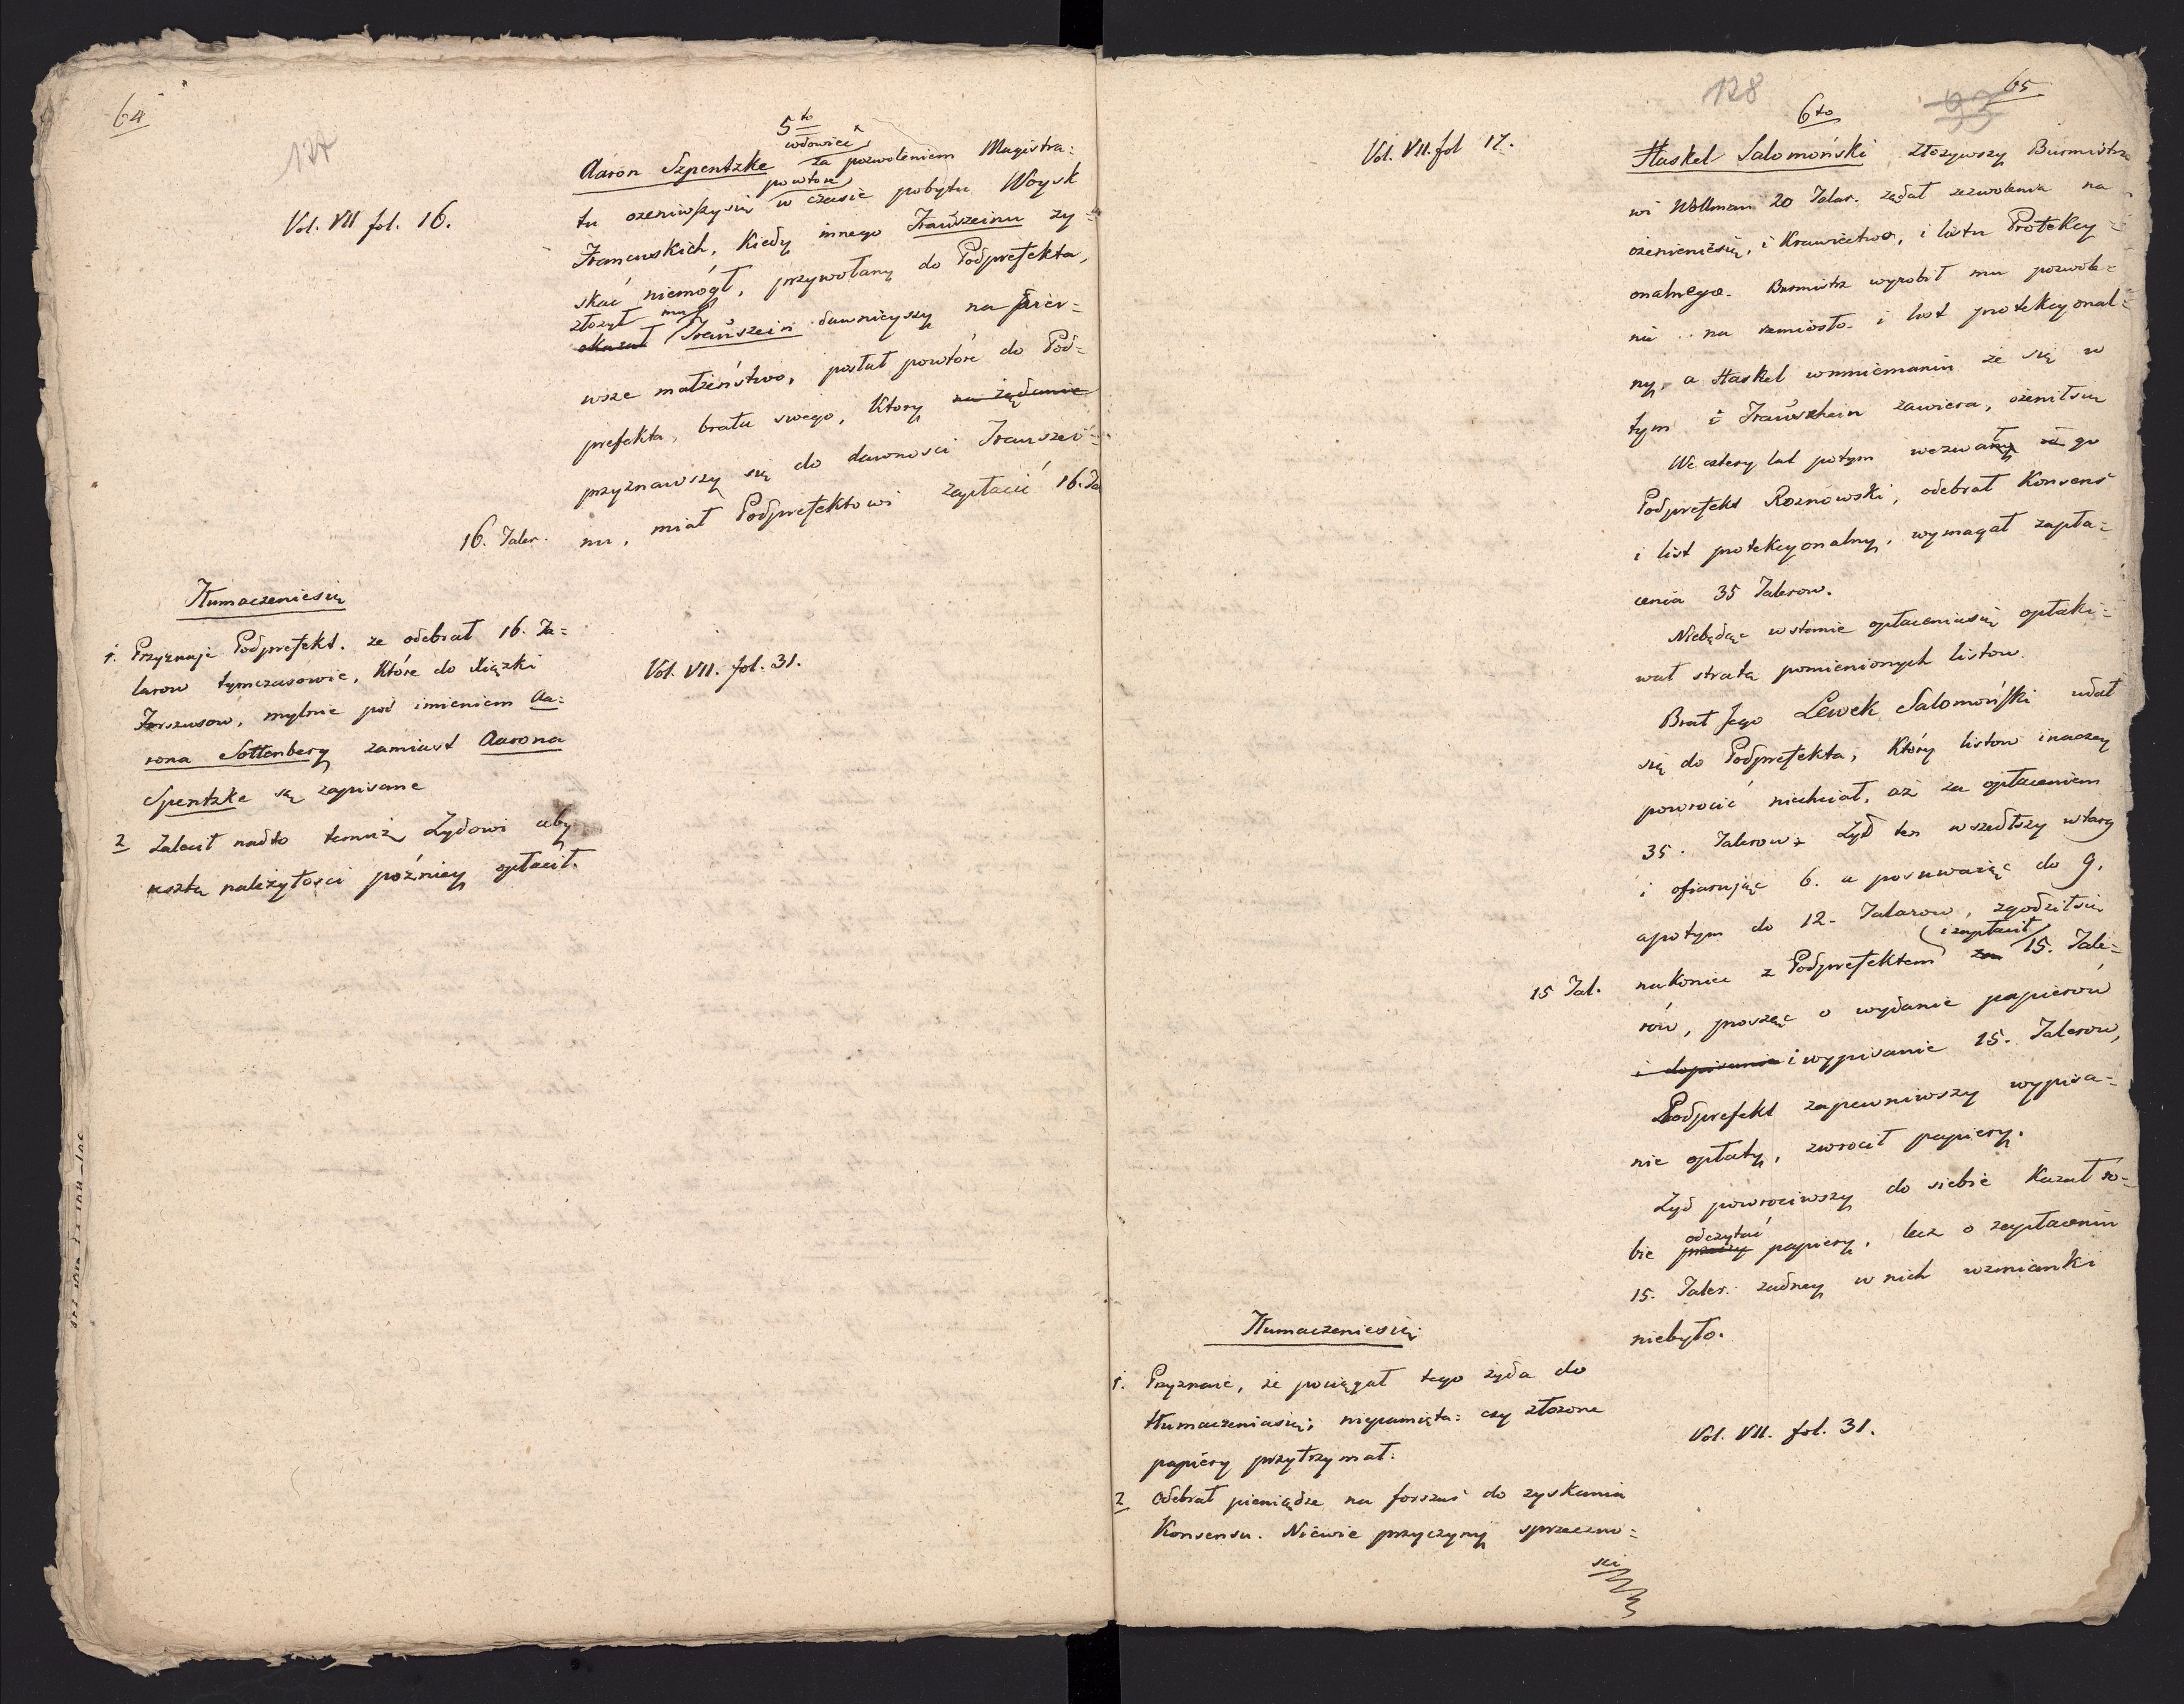 64
127
5to
wdowiec
Aaron Szpentzke za pozwoleniem Magistra=
powtore
tu ozeniwszysię w czasie pobytu Woysk
Vol. VII fol. 16.
Francuskich, Kiedy innego Trauszeinu zy=
skać niemógł, przywołany do Podprefekta,
złozył mu
okazał Trauszein dawnieyszy na pier=
wsze małzeństwo, posłał powtóre do Pod=
prefekta, brata swego, Ktory na żądanie
przyznawszy się do dawnosci Trauszei=
nu, miał Podprefektowi zapłacić 16. Ta
16. Taler.
Tłumaczeniesię
1. Przyznaje Podprefekt. ze odebrał 16. Ta=
larow tymczasowie, Które do Xiązki
Vol. VII. fol. 31.
Forszusow, mylnie pod imieniem Aa=
rona Sottenberg zamiast Aarona
Spentzke są zapisane
2 Zalecił nadto temuz Zydowi aby
resztę należytości późniey opłacił.
128
93
65
6to
Vol. VII. fol 17.
Haskel Salomoński złozywszy Burmistrzo
wi Wollman 20 Talar. ządał zezwolenia na
ozenieniesię, i Krawiectwo, i listu Protekcy=
onalnego. Burmistrz wyrobił mu pozwole=
nie na rzemiosło i list protekcyonal=
ny, a Haskel wmniemaniu ze się w
tym i Trauschein zawiera, ozeniłsię
We cztery lat potym wezwał go
Podprefekt Roznowski, odebrał Konsens
i list protekcyonalny, wymagał zapła=
cenia 35 Talerow.
Niebędąc wstanie opłaceniasię opłaki=
wał stratę pomienionych listow.
Brat Jego Lewek Salomoński udał
się do Podprefekta, Który listow inaczey
powrocić niechciał, aż za opłaceniem
35. Talerow. Zyd ten wszedłszy wtarg
i ofiarując 6. a posuwaiąc do 9,
apotym do 12. Talarow, zgodziłsię
i zapłacił
15 Tal.
nakoniec z Podprefektem za 15. Tale=
rów, prosząc o wydanie papierow
i dopisanie i wypisanie 15. Talerow,
Podprefekt zapewniwszy wypisa=
nie opłaty, zwrocił papiery.
Zyd powrociwszy do siebie Kazał so=
odczytać
bie papiery, lecz o zapłaceniu
15. Taler. zadney w nich wzmianki
niebyło.
Tłumaczeniesię
1. Przyznaie, że pociągał tego zyda do
tłumaczeniasię; niepamięta: czy złozone
papiéry przytrzymał.
Vol. VII. fol. 31.
2 Odebrał pieniądze na forszus do zyskania
Konsensu. Niewie przyczyny sprzeczno=
sci